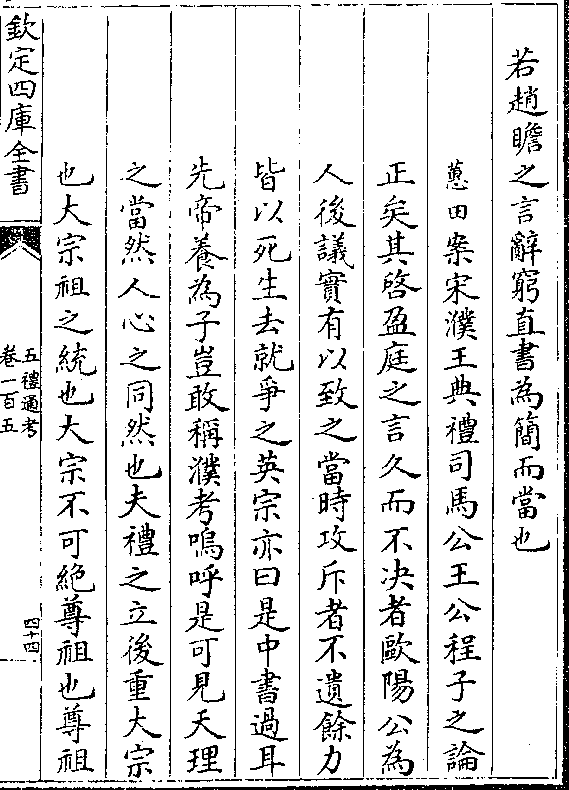 若趙瞻之言辭窮直書為簡而當也
蕙田案宋濮王典禮司馬公王公程子之論
正矣其啓盈庭之言久而不决者歐陽公為
人後議實有以致之當時攻斥者不遺餘力
皆以死生去就爭之英宗亦曰是中書過耳
先帝養為子豈敢稱濮考嗚呼是可見天理
之當然人心之同然也夫禮之立後重大宗
也大宗祖之統也大宗不可絶尊祖也尊祖
欽定四庫全書
五禮通考
卷一百五
四十四